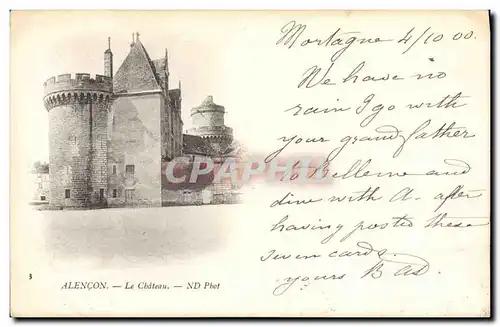 Mortagne 4/10 00.
We have no
rain I go with
your grandfather
to Bellême and
dine with A. after
having posted these
seven cards.
yours
CPARAMA.COM
3
ALENÇON. — Le Château. — ND Phot